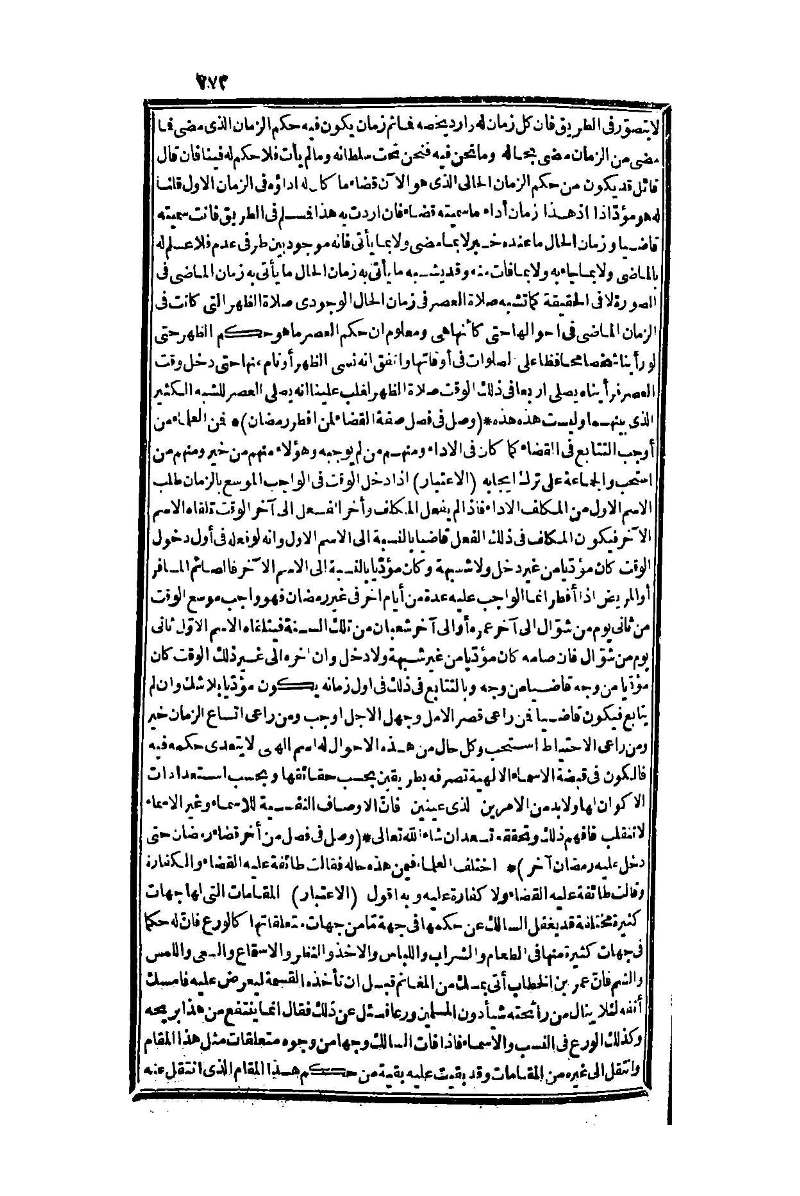 ٢٧٢
لا يتصور فى الطريق فان كل زمان له وارد يخصه فما ثم زمان يكون فيه حكم الزمان الذى مضى فما
مضى من الزمان مضى بحاله وما نحن فيه فنحن تحت سلطانه وما لم يأت فلا حكم له فينا فان قال
قائل قد يكون من حكم الزمان الحالى الذى هو الآن قضاء ما كان له اداؤه فى الزمان الاول قلنا
له هو مؤد اذا اذ هذا زمان أداء ما سميته قضاء فان اردت به هذا فمسلم فى الطريق فانت سميته
قاضيا وزمان الحال ما عنده خبر لا بما مضى ولا بما يأتى فانه موجود بين طرفى عدم فلا علم له
بالماضى ولا بما جاء به ولا بما فات منه وقد يشبه ما يأتى به زمان الحال ما يأتى به زمان الماضى فى
الصورة لا فى الحقيقة كما تشبه صلاة العصر فى زمان الحال الوجودى صلاة الظهر التى كانت فى
الزمان الماضى فى احوالها حتى كأنها هى ومعلوم ان حكم العصر ما هو حكم الظهر حتى
لو رأينا شخصا محافظا على الصلوات فى أوقاتها واتفق انه نسى الظهر أو نام عنها حتى دخل وقت
العصر فرأيناه يصلى اربعا فى ذلك الوقت صلاة الظهر لغلب علينا انه يصلى العصر للشبه الكثير
الذى بينهما وليست هذه هذه *(وصل فى فصل صفة القضاء لمن افطر رمضان)* فمن العلماء من
أوجب التتابع فى القضاء كما كان فى الاداء ومنهم من لم يوجبه وهؤلاء منهم من خير ومنهم من
استحب والجماعة على ترك ايجابه (الاعتبار) اذا دخل الوقت فى الواجب الموسع بالزمان طلب
الاسم الاول من المكلف الاداء فاذا لم يفعل المكلف وأخر الفعل الى آخر الوقت تلقاه الاسم
الآخر فيكون المكلف فى ذلك الفعل قاضيا بالنسبة الى الاسم الاول وانه لو فعله فى أول دخول
الوقت كان مؤديا من غير دخل ولا شبهة وكان مؤديا بالنسبة الى الاسم الآخر فالصائم المسافر
أو المريض اذا أفطر انما الواجب عليه عدة من أيام اخر فى غير رمضان فهو واجب موسع الوقت
من ثانى يوم من شوال الى آخر عمره أو الى آخر شعبان من تلك السنة فيتلقاه الاسم الاول ثانى
يوم من شوال فان صامه كان مؤديا من غير شبهة ولا دخل وان اخره الى غير ذلك الوقت كان
مؤديا من وجه قاضيا من وجه وبالتتابع فى ذلك فى اول زمانه يكون مؤديا بلا شك وان لم
يتابع فيكون قاضيا فمن راعى قصر الامل وجهل الاجل اوجب ومن راعى اتساع الزمان خير
ومن راعى الاحتياط استحب وكل حال من هذه الاحوال له اسم الهى لا يتعدى حكمه فيه
فالكون فى قبضة الاسماء الالهية تصرفه بطريقين بحسب حقائقها وبحسب استعدادات
الاكوان لها ولا بد من الامرين لذى عينين فان الاوصاف النفسية للاسماء وغير الاسماء
لا تنقلب فافهم ذلك وتحققه تسعد ان شاء الله تعالى *(وصل فى فصل من أخر قضاء رمضان حتى
دخل عليه رمضان آخر)* اختلف العلماء فيمن هذه حاله فقالت طائفة عليه القضاء والكفارة
وقالت طائفة عليه القضاء ولا كفارة عليه وبه اقول (الاعتبار) المقامات التى لها جهات
كثيرة مختلفة قد يغفل السالك عن حكمها فى جهة ما من جهات متعلقاتها كالورع فان له حكما
فى جهات كثيرة منها فى الطعام والشراب واللباس والاخذ والنظر والاسماع والسعى واللمس
والشم فان عمر بن الخطاب أتى بمسك من المغانم قبل ان تأخذه القسمة ليعرض عليه فامسك
أنفه لئلا ينال من رائحته شيأ دون المسلمين ورعا فسئل عن ذلك فقال انما ينتفع من هذا بريحه
وكذلك الورع فى النسب والاسماء فاذا فات السالك وجها من وجوه متعلقات مثل هذا المقام
وانتقل الى غيره من المقامات وقد بقيت عليه بقية من حكم هذا المقام الذى انتقل عنه